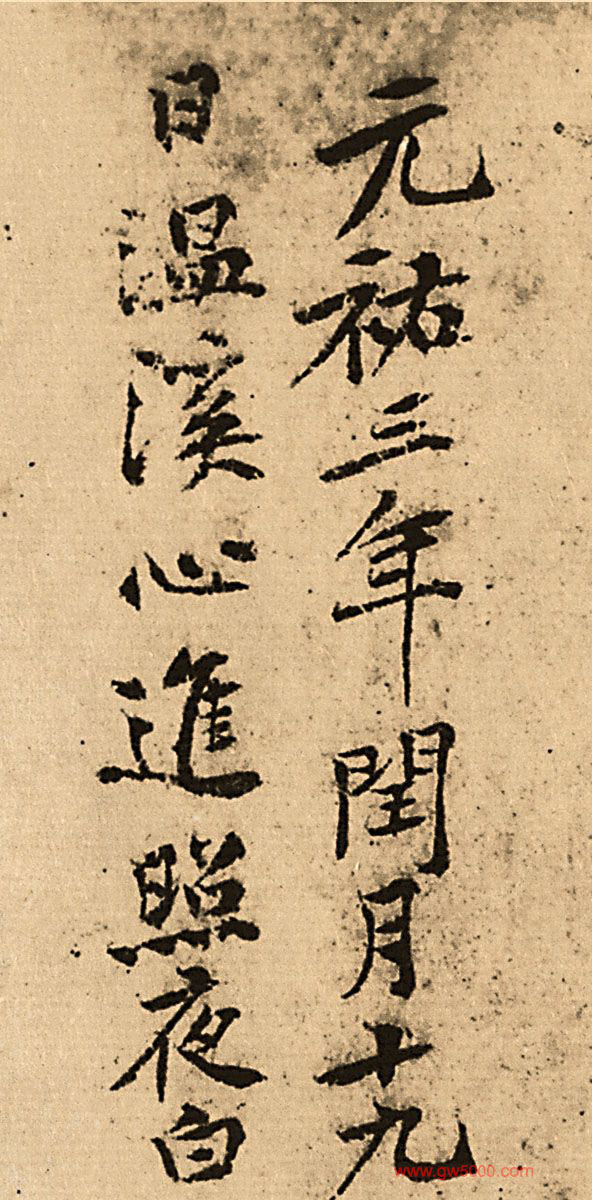 元祐三年閏月十九
日溫溪心進照夜白
www.gw5000.com